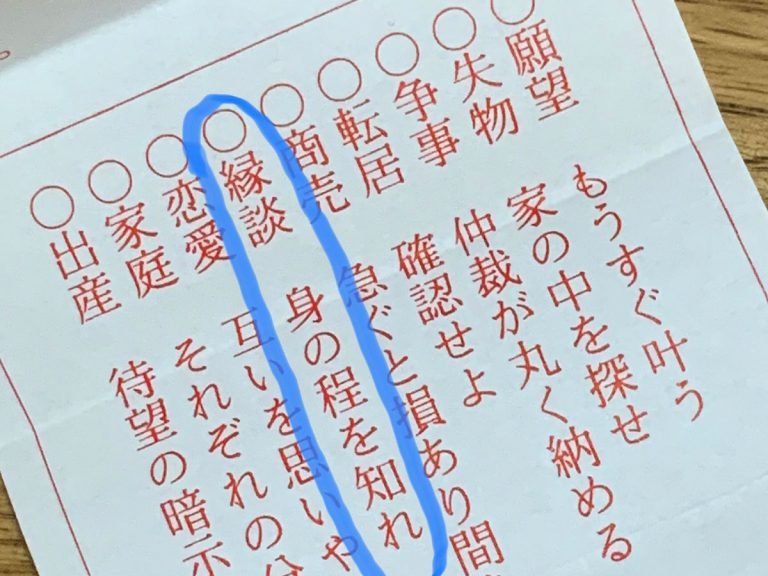 ○願望 もうすぐ叶う
○失物 家の中を探せ
○争事 仲裁が丸く納める
○転居 確認せよ
○商売 急ぐと損あり間
○縁談 身の程を知れ
○恋愛 互いを思いや
○家庭 それぞれの
○出産 待望の暗示